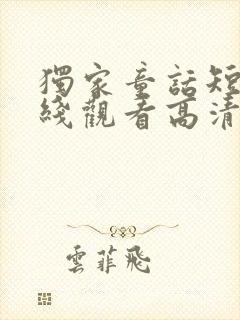 獨家童話短
綫觀看高清
雲菲飛